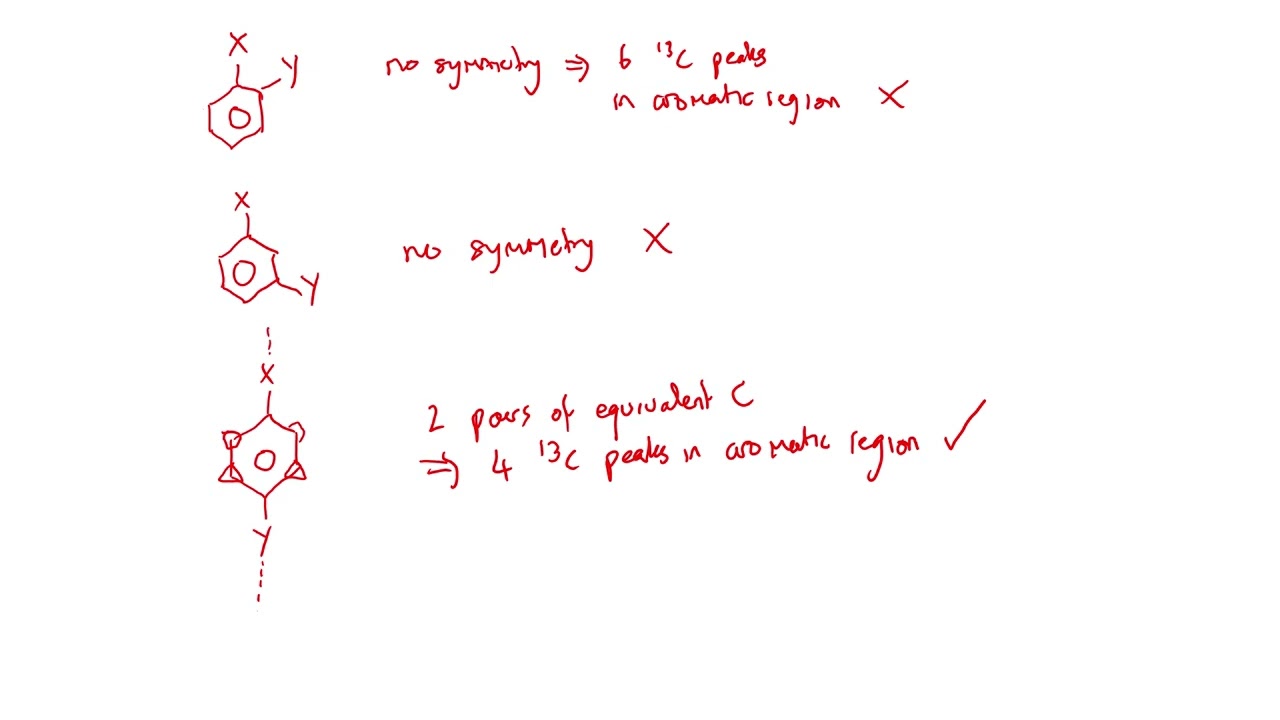 X
Y
no symmetry ⇒ 6 ¹³C peaks
in aromatic region ✗
X
Y
no symmetry ✗
X
Y
2 pairs of equivalent C
⇒ 4 ¹³C peaks in aromatic region ✓